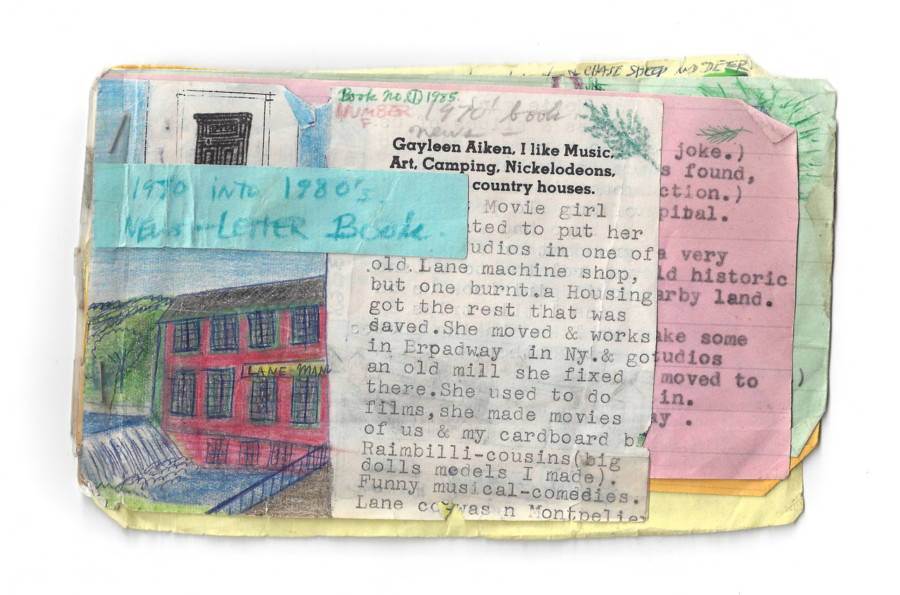 CHASE SHEEP AND DEER
Book no. 1 1985.
NUMBER
1970' book
news
1970 INTO 1980's
NEWS-LETTER Book.
Gayleen Aiken, I like Music,
Art, Camping, Nickelodeons,
country houses.
Movie girl
ted to put her
udios in one of
old.Lane machine shop,
but one burnt.a Housing
got the rest that was
saved.She moved & works
in Brpadway in Ny.& go
an old mill she fixed
there.She used to do
films,she made movies
of us & my cardboard b
Raimbilli-cousins(big
dolls models I made).
Funny musical-comedies.
Lane co was n Montpelier
LANE MAN
joke.)
s found,
ction.)
pital.
a very
ld historic
arby land.
ake some
tudios
moved to
in.
ay .
)